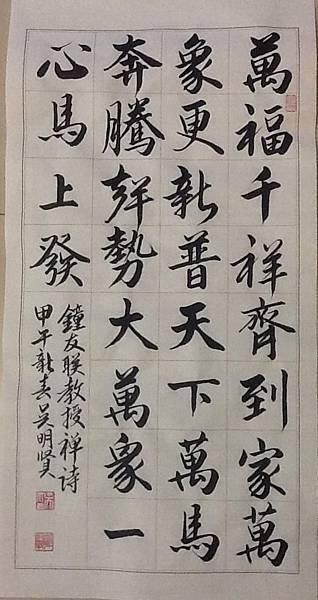 萬福千祥齊到家萬
象更新普天下萬馬
奔騰勢大萬衆一
心馬上發
鐘友联教授禅诗
甲午新春吴明賢